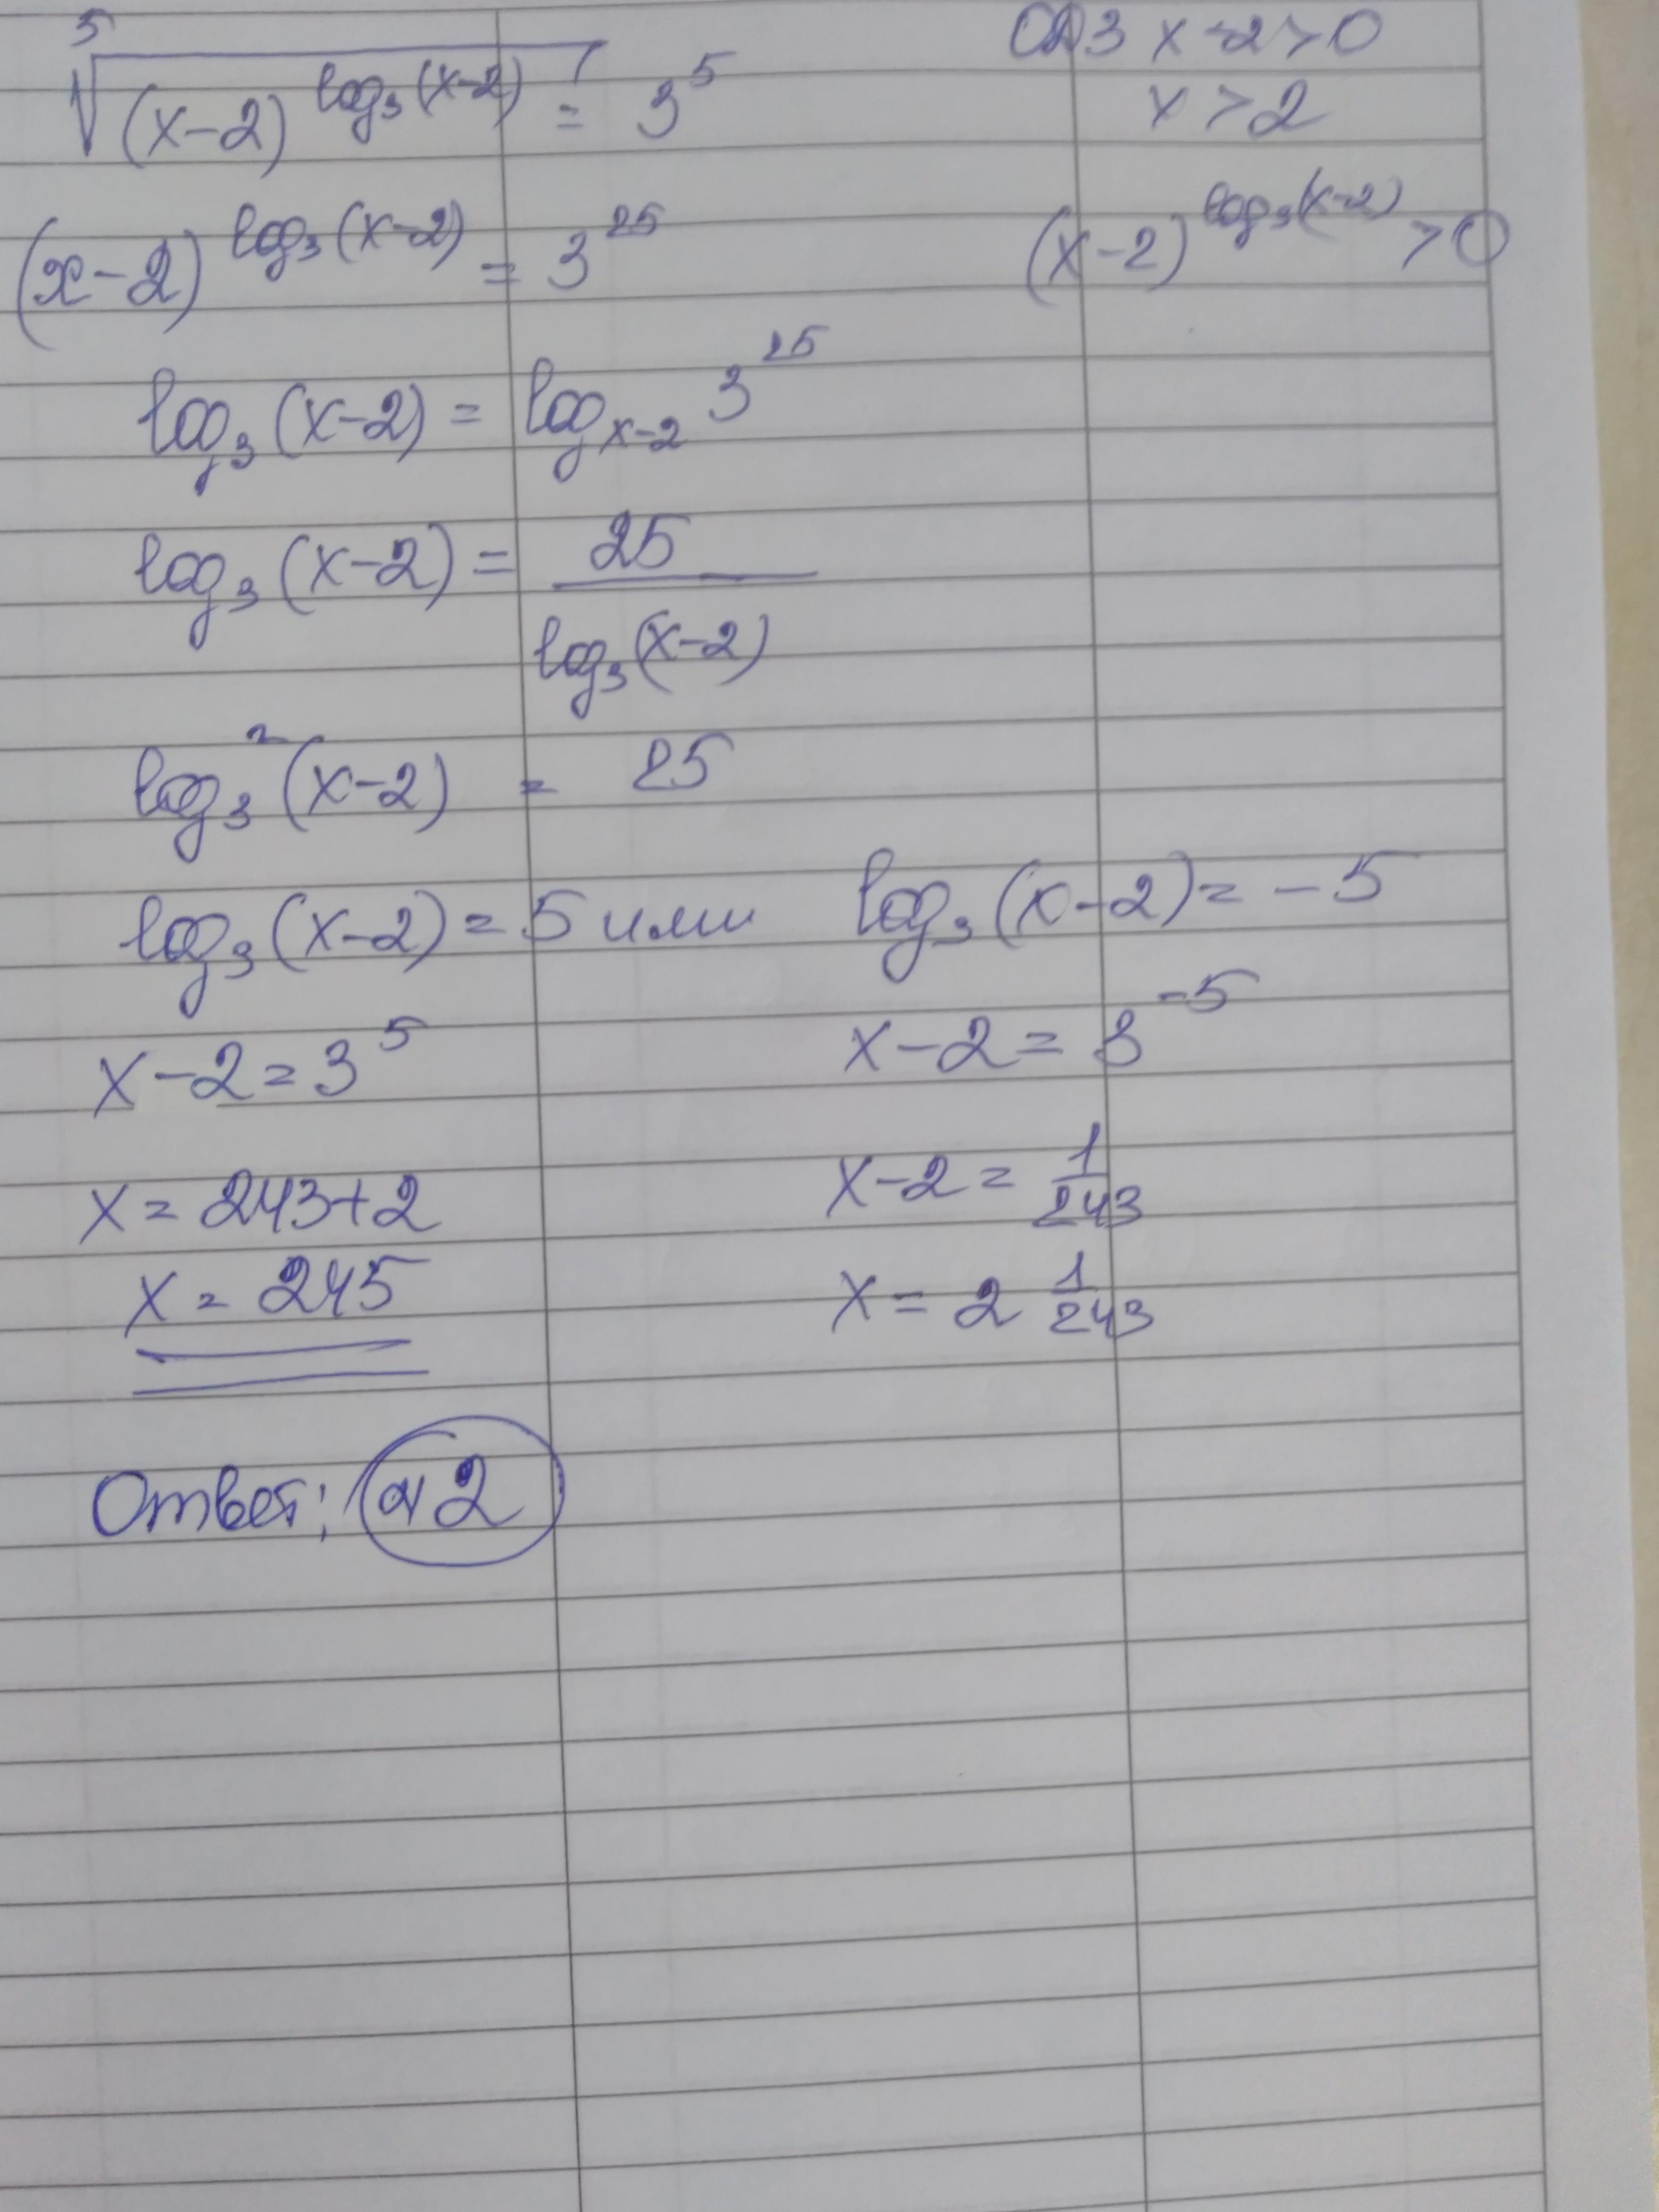 ⁵√((x-2)^(log₃(x-2))) = 3⁵
ОДЗ x-2>0
x>2
(x-2)^(log₃(x-2)) = 3²⁵
(x-2)^(log₃(x-2)) > 0
log₃(x-2) = logₓ₋₂ 3²⁵
log₃(x-2) = 25 / log₃(x-2)
log₃²(x-2) = 25
log₃(x-2) = 5 или log₃(x-2) = -5
x-2 = 3⁵
x-2 = 3⁻⁵
x = 243+2
x-2 = 1/243
x = 245
x = 2 1/243
Ответ: 2